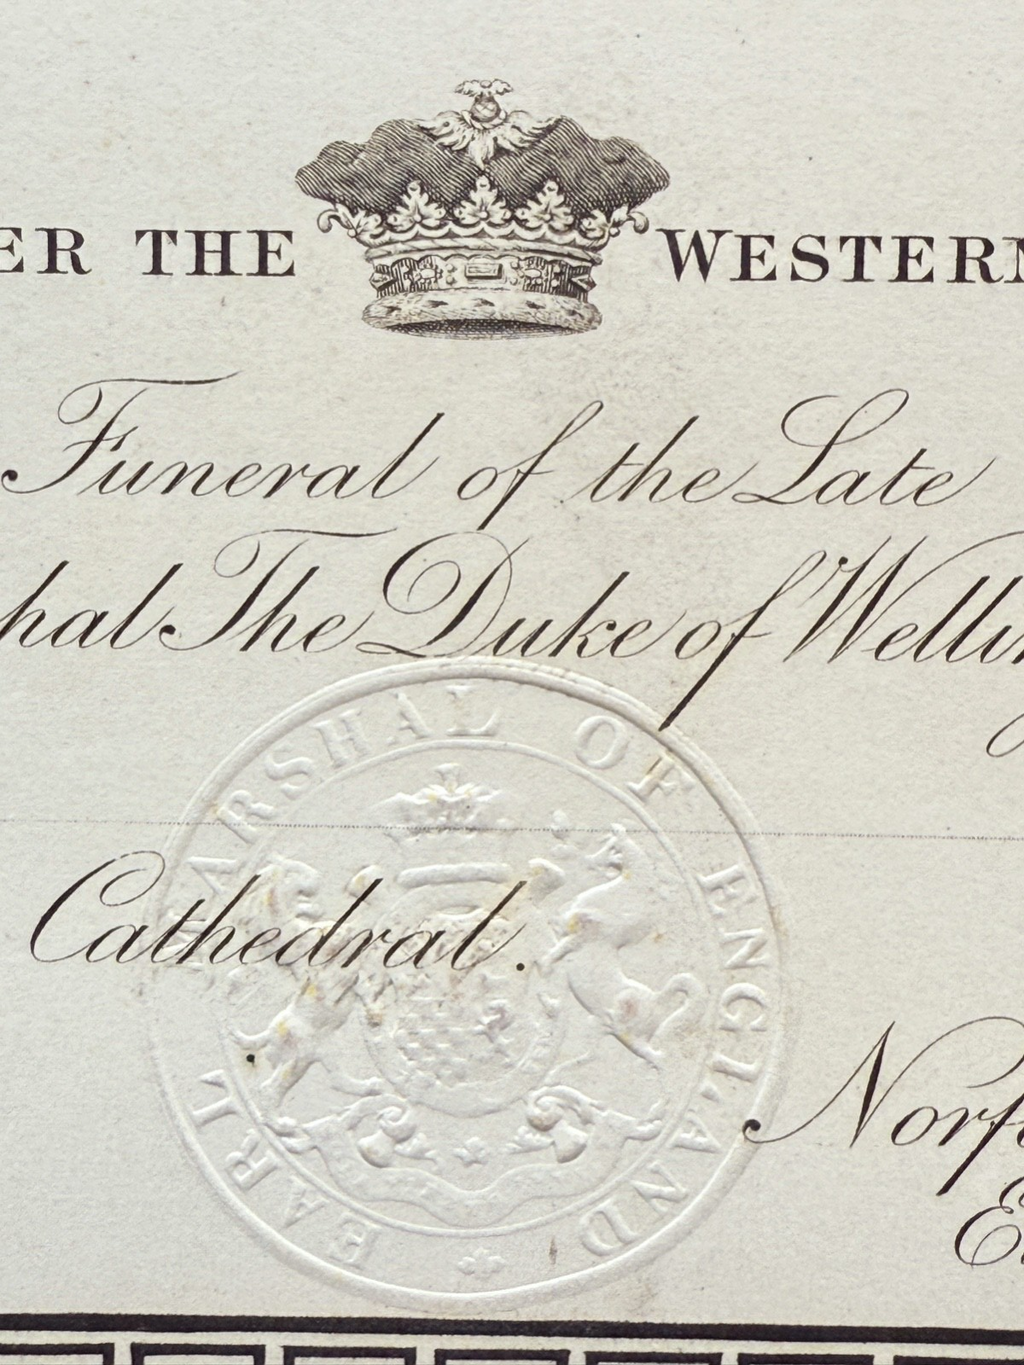 ER THE WESTERN
Funeral of the Late
hal The Duke of Welling
Cathedral.
Norf
E
EARL MARSHAL OF ENGLAND